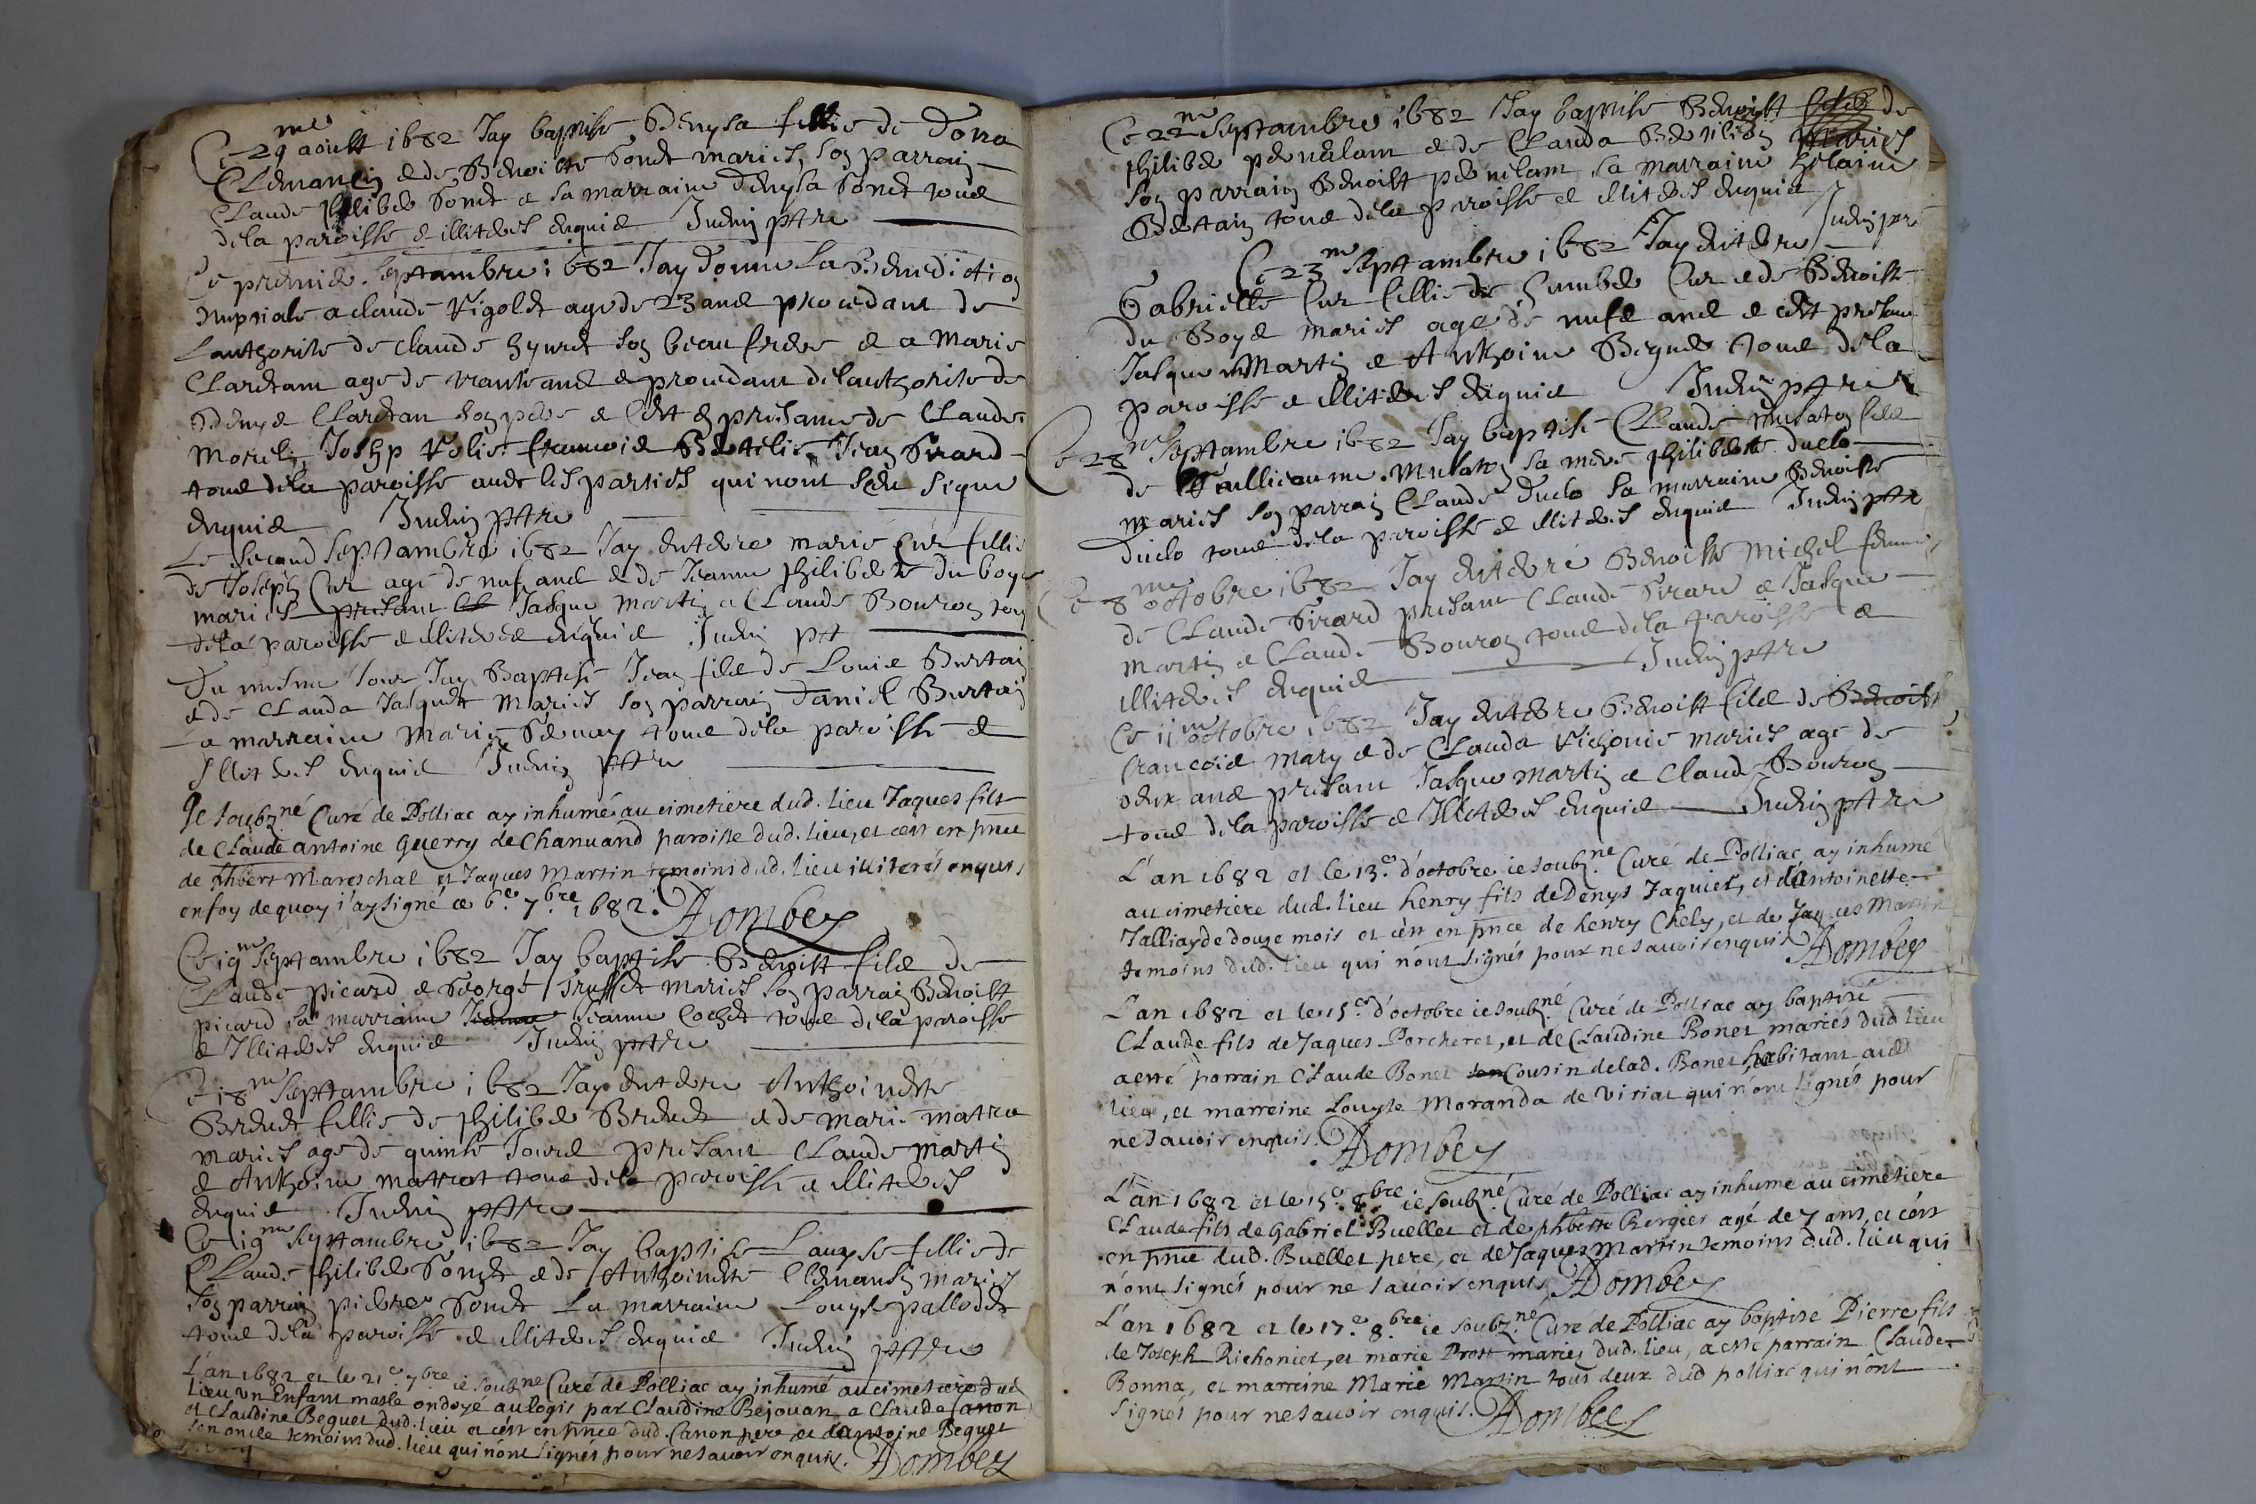 Ce 29me aoust 1682 Jay baptise Denysa fillie de Dona
Clemancin e de Benoiste Sondt maries, son parrain
Claude philiber Sondt e sa marraine denysa Sondt tous
dela paroisse e illiteres enquis Judin ptre
Ce premier septambre 1682 Jay donne La Benediction
nupsiale a claude Vigolet age de 23 ans procedant de
Lauthorite de claude son beau frere e a Marie
Claretam age de trante ans e procedant delauthorite de
Denys Claretan son pere e cest en presance de Claude
Morel Joshp Velie francois Jean Sirard
tous dela paroisse aude les parties qui nont sceu signe
enquis Judin ptre
Le second septambre 1682 Jay entere marie Cur fillie
de Joseph Cur age de nuf ans e de Jeanne philiberte du boys
maries presant Jasque martin e Claude Bouron tous
dela paroisse e illiteres enquis Judin ptt
Du mesme Jour Jay Baptise Jean fils de Louis Burtain
e de Clauda Jasquet Maries son parrain Daniel Burtain
a marraine Marie tous dela paroisse e
Illiteres enquis Judin ptre
Je soubzné Curé de Polliac ay inhumé au cimetiere dud. lieu Jaques fils
de Claude antoine Guerry de Chanuand paroisse dud. lieu, et cest en pnce
de phbert Mareschal et Jaques Martin temoins dud. lieu illiterés enquis,
en foy de quoy i'ay signé ce 6e 7bre 1682. Dombey
Ce 19me septambre 1682 Jay baptise Benoist fils de
Claude picard e George Truffet maries son parrain Benoist
picard sa marraine Jeanne Cochet tous dela paroisse
e Illiteres enquis Judin ptre
Ce 18me septambre 1682 Jay entere Anthoinette
Brevet fillie de philiber Brevet e de marie matra
maries age de quinse Jours presant Claude martin
e Anthoine matrat tous dela paroisse e illiteres
enquis Judin ptre
Ce 19me septambre 1682 Jay baptise Louyse fillie de
Claude philiber Sondt e de Anthoinette Clemansin maries
son parrain pierre Sondt La marraine Louyse pallodet
tous dela paroisse e illiteres enquis Judin ptre
L'an 1682 et le 21e 7bre ie soubzne Curé de Polliac ay inhumé au cimetiere dud
lieu vn Enfant masle ondoyé au logis par Claudine Bejouan a Claude Canon
et Claudine Beguet dud. lieu et cest en pnce dud. Canon pere et dantoine Beguet
son oncle temoins dud. lieu qui n'ont signés pour ne sauoir enquis. Dombey
Ce 22me septambre 1682 Jay baptise Benoist de
philiber e de Clauda maries
son parrain Benoist sa marraine
tous dela paroisse e illiteres enquis
Judin ptre
Ce 23me septtambre 1682 Jay entere
Gabrielle Cur fillie de humber Cur e de Benoiste
du Boys maries age de nufe ans e cest presant
Jasque Martin e Anthoine tous dela
paroisse e illiteres enquis Judin ptre
Ce 28me septtambre 1682 Jay baptise Claude Musaton fils
de Gullieaume Musaton sa mere philiberte duclo
maries son parrain Claude duclo sa marraine Benoiste
duclo tous dela paroisse e illiteres enquis Judin ptre
Ce 8me octobre 1682 Jay entere Benoiste Michel femme
de Claude Sirard presant Claude Sirard e Jasque
martin e Claude Bouron tous dela paroisse e
illiteres enquis Judin ptre
Ce 11me octobre 1682 Jay entere Benoist fils de Benoist
francois mary e de Clauda Vichonie maries age de
deux ans presant Jasque martin e Claude Bouron
tous dela paroisse e Illiteres enquis Judin ptre
L'an 1682 et le 13e d'octobre ie soubzne Curé de Polliac ay inhumé
au cimetiere dud. lieu henry fils de Denys Jaquier, et d'Antoinette
Talliay de douze mois et cest en pnce de henry Chely, et de Jaques Martin
temoins dud. lieu qui n'ont signés pour ne sauoir enquis Dombey
L'an 1682 et le 15e d'octobre ie soubzné Curé de Polliac ay baptisé
Claude fils de Jaques Porcheret, et de Claudine Bonet mariés dud. lieu
a esté parrain Claude Bonet son Cousin de lad. Bonet, habitant aud
lieu, et marreine Louyse Moranda de Viriat qui n'ont signés pour
ne sauoir enquis. Dombey
L'an 1682 et le 15e 8bre ie soubzné Curé de Polliac ay inhumé au cimetiere
Claude fils de Gabriel Buellet et de phberte Bergier agé de 7 ans, et cest
en pnce dud. Buellet pere, et de Jaques Martin temoins dud. lieu qui
n'ont signés pour ne sauoir enquis, Dombey
L'an 1682 et le 17e 8bre ie soubzne Curé de Polliac ay baptisé Pierre fils
de Joseph Richoniet, et marie Prost mariés dud. lieu, a esté parrain Claude
Bonna, et marreine Marie Martin tous deux dud polliac qui n'ont
signés pour ne sauoir enquis. Dombey